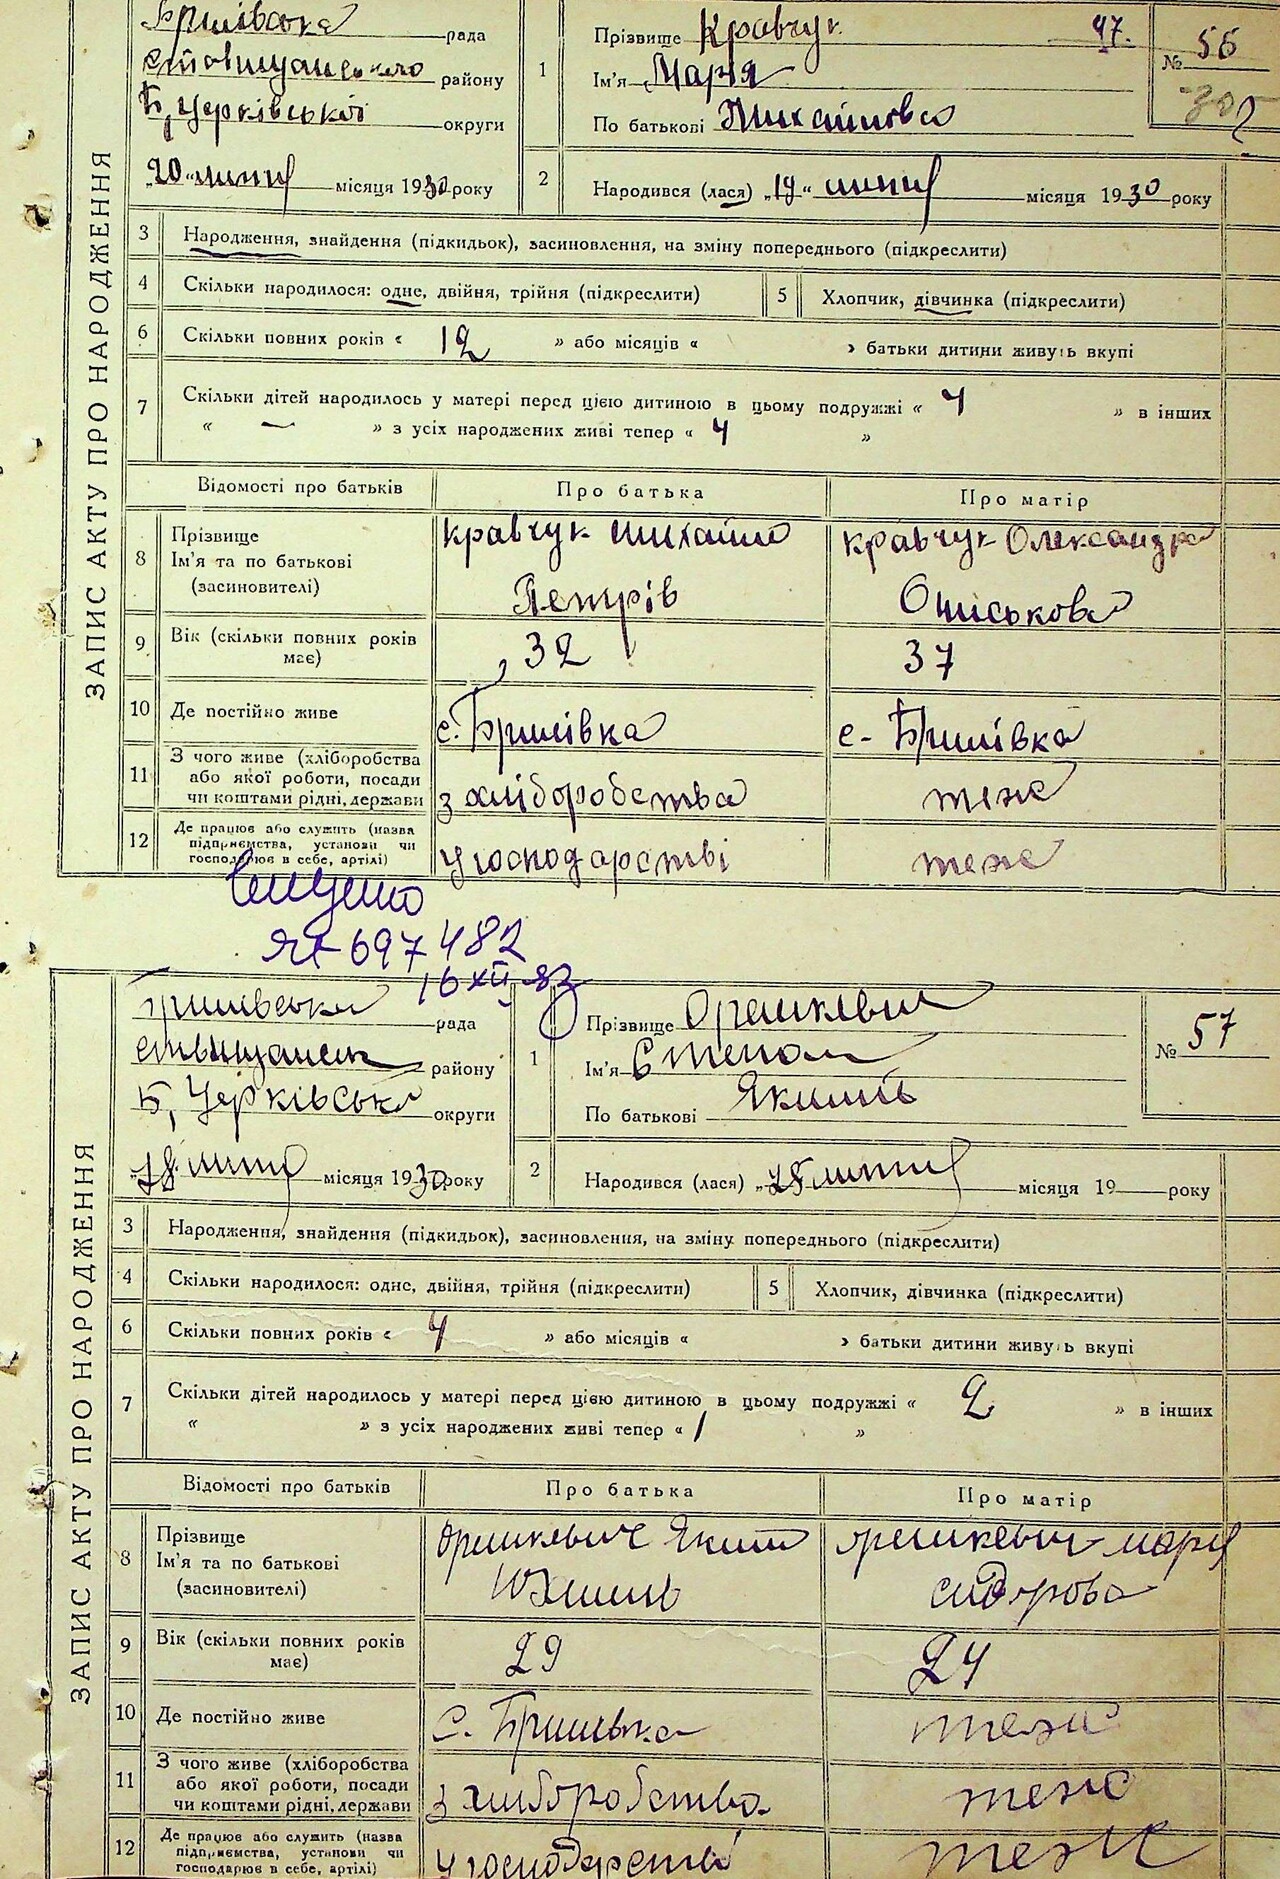 ЗАПИС АКТУ ПРО НАРОДЖЕННЯ
Бришівська рада
Ставищанського району
Б, Церківської округи
„20“ липня місяця 1930 року
1 Прізвище Кравчук 47.
Ім'я Марія
По батькові Михайлова
№ 56
302
2 Народився (лася) „19“ липня місяця 1930 року
3 Народження, знайдення (підкидьок), засиновлення, на зміну попереднього (підкреслити)
4 Скільки народилося: одне, двійня, трійня (підкреслити) 5 Хлопчик, дівчинка (підкреслити)
6 Скільки повних років « 12 » або місяців « » батьки дитини живуть вкупі
7 Скільки дітей народилось у матері перед цією дитиною в цьому подружжі « 4 » в інших
« — » з усіх народжених живі тепер « 4 »
Відомості про батьків Про батька Про матір
8 Прізвище Ім'я та по батькові (засиновителі) Кравчук Михайло Петрів Кравчук Олександра Ониськова
9 Вік (скільки повних років має) 32 37
10 Де постійно живе с. Бришівка с. Бришівка
11 З чого живе (хліборобства або якої роботи, посади чи коштами рідні, держави з хліборобства теж
12 Де працює або служить (назва підприємства, установи чи господарює в себе, артілі) у господарстві теж
697482
16 XII
ЗАПИС АКТУ ПРО НАРОДЖЕННЯ
Бришівська рада
Ставищанськ району
Б, Церківська округи
„28 липня місяця 1930 року
1 Прізвище Орешкевич
Ім'я Степан
По батькові Якимів
№ 57
2 Народився (лася) „25 липня місяця 19 року
3 Народження, знайдення (підкидьок), засиновлення, на зміну попереднього (підкреслити)
4 Скільки народилося: одне, двійня, трійня (підкреслити) 5 Хлопчик, дівчинка (підкреслити)
6 Скільки повних років « 4 » або місяців « » батьки дитини живуть вкупі
7 Скільки дітей народилось у матері перед цією дитиною в цьому подружжі « 2 » в інших
« » з усіх народжених живі тепер « 1 »
Відомості про батьків Про батька Про матір
8 Прізвище Ім'я та по батькові (засиновителі) Орешкевич Яким Юхимів Орешкевич Марія Сидорова
9 Вік (скільки повних років має) 29 24
10 Де постійно живе с. Бришівка теж
11 З чого живе (хліборобства або якої роботи, посади чи коштами рідні, держави з хліборобства теж
12 Де працює або служить (назва підприємства, установи чи господарює в себе, артілі) у господарстві теж